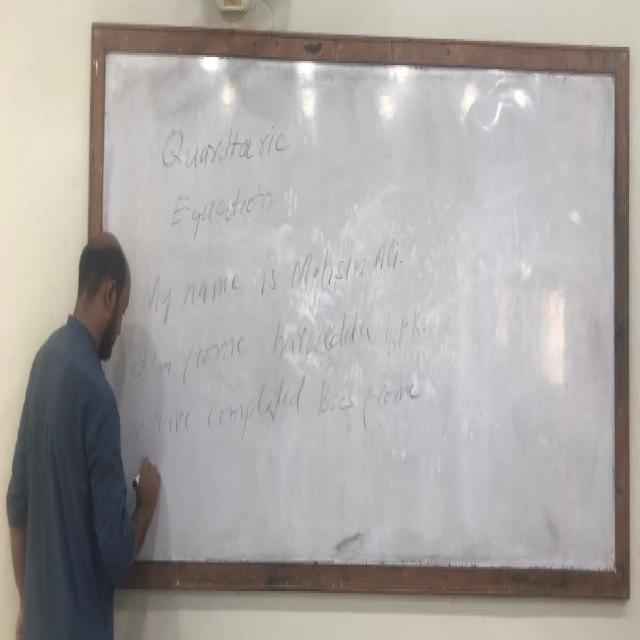 Quardtaric
Equation
My name is Mohsin Ali.
I'm frome K.P.K.
have completed Bscs frome